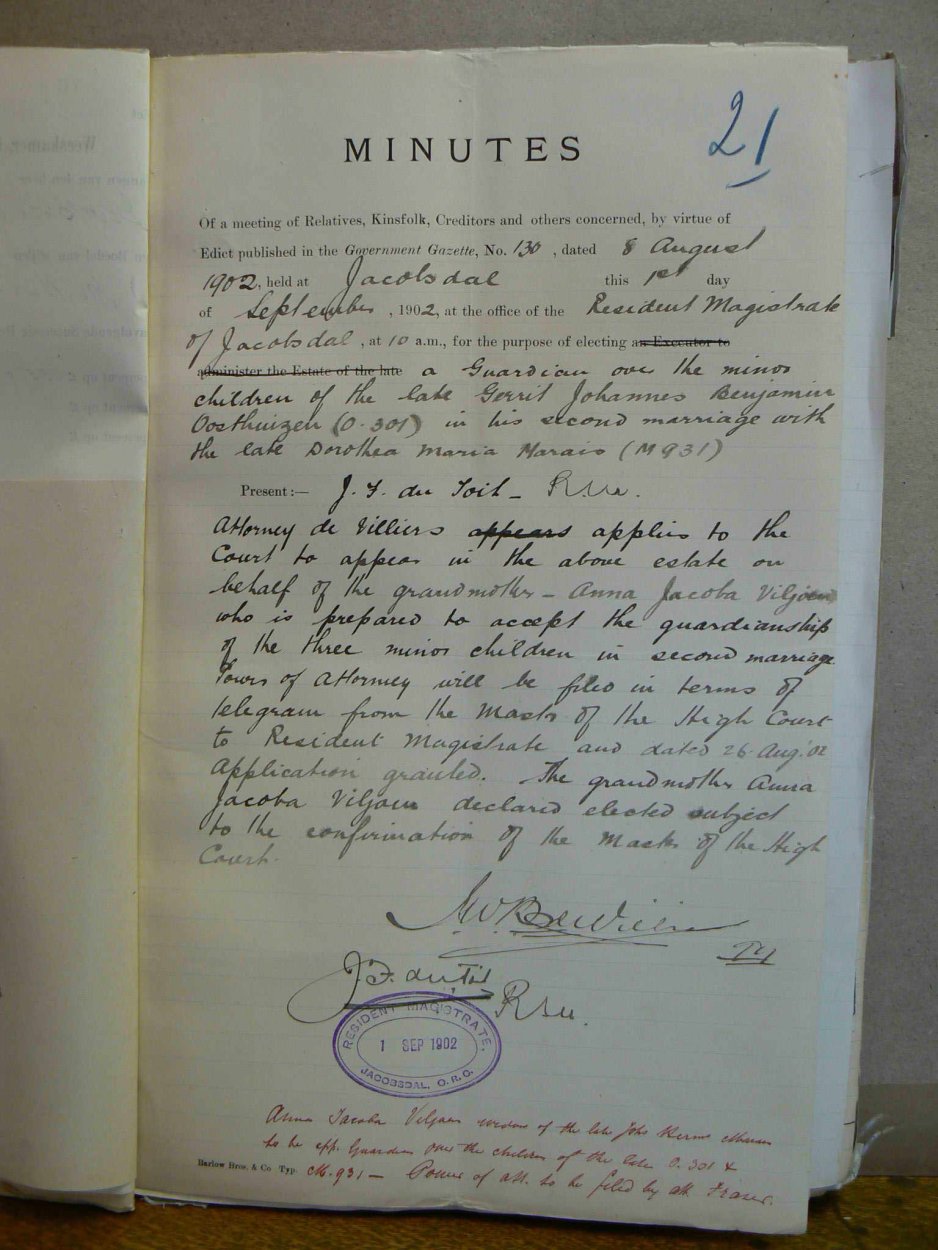 21
MINUTES
Of a meeting of Relatives, Kinsfolk, Creditors and others concerned, by virtue of
Edict published in the Government Gazette, No. 130, dated 8 August
1902, held at Jacobsdal this 1st day
of September, 1902, at the office of the Resident Magistrate
of Jacobsdal, at 10 a.m., for the purpose of electing an Executor to
administer the Estate of the late a Guardian over the minor
children of the late Gerrit Johannes Benjamin
Oosthuizen (O.301) in his second marriage with
the late Dorothea Maria Marais (M931)
Present:— J. F. du Toit - R.M.
Attorney de Villiers appears applies to the
Court to appear in the above estate on
behalf of the grandmother - Anna Jacoba Viljoen
who is prepared to accept the guardianship
of the three minor children in second marriage
Power of Attorney will be filed in terms of
telegram from the Master of the High Court
to Resident Magistrate and dated 26 Aug. 02
Application granted. The grandmother Anna
Jacoba Viljoen declared elected subject
to the confirmation of the Master of the High
Court.
J. F. du Toit
R.M.
RESIDENT MAGISTRATE.
1 SEP 1902
JACOBSDAL, O.R.C.
Anna Jacoba Viljoen widow of the late Marais
to be app. Guardian over the children of the late O.301 &
Barlow Bros. & Co Typ. M.931 — Power of att. to be filed by att. Fraser.